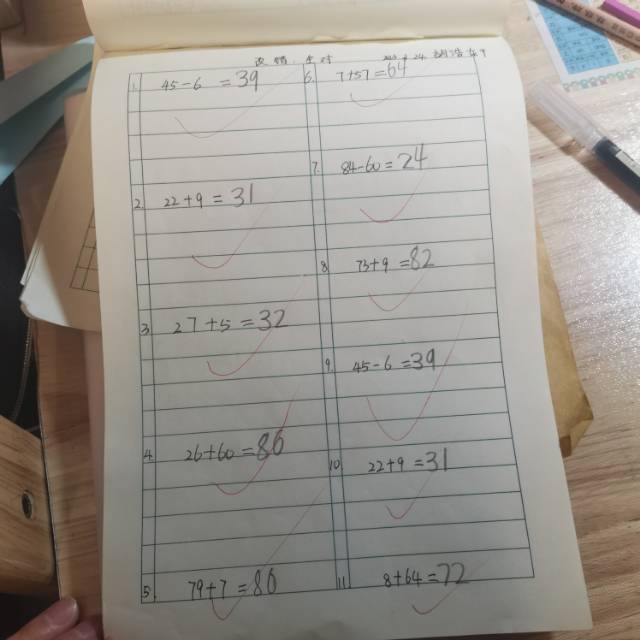 1. 45-6=39
2. 22+9=31
3. 27+5=32
4. 26+60=86
5. 79+7=86
6. 7+57=64
7. 84-60=24
8 73+9=82
9. 45-6=39
10 22+9=31
11 8+64=72